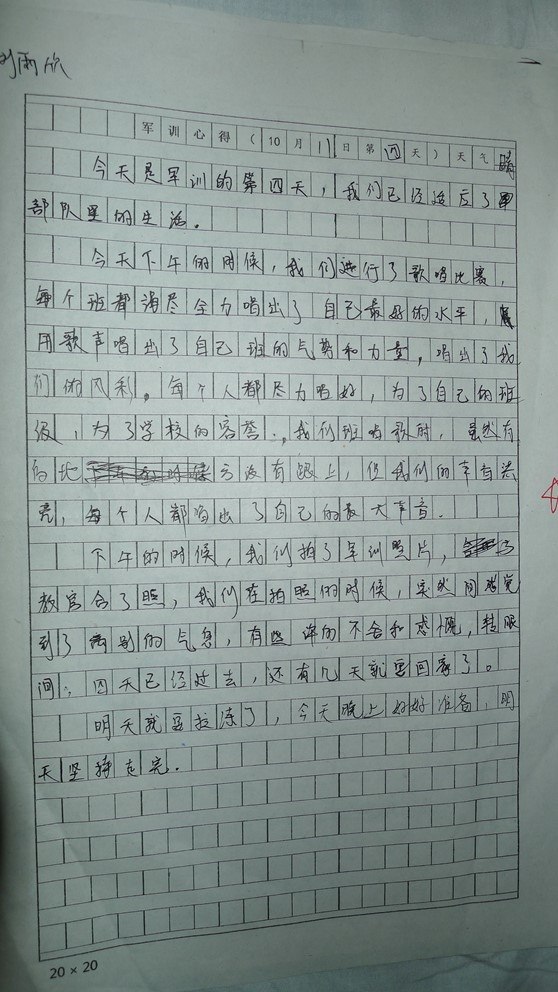 刘雨欣
军训心得(10月11日第四天)天气晴
今天是军训的第四天,我们已经适应了
部队里的生活。
今天下午的时候,我们进行了歌唱比赛,
每个班都竭尽全力唱出了自己最好的水平,
用歌声唱出了自己班的气势和力量,唱出了我
们的风彩。每个人都尽力唱好,为了自己的班
级,为了学校的容誉.,我们班唱歌时,虽然有
的地方没有跟上,但我们的声音洪
亮,每个人都唱出了自己的最大声音.
下午的时候,我们拍了军训照片,与
教官合了照,我们在拍照的时候,突然间
到了离别的气息,有些许的不舍和感慨,转眼
间,四天已经过去,还有几天就要回家了。
明天就要拉练了,今天晚上好好准备,明
天坚持走完.
20×20